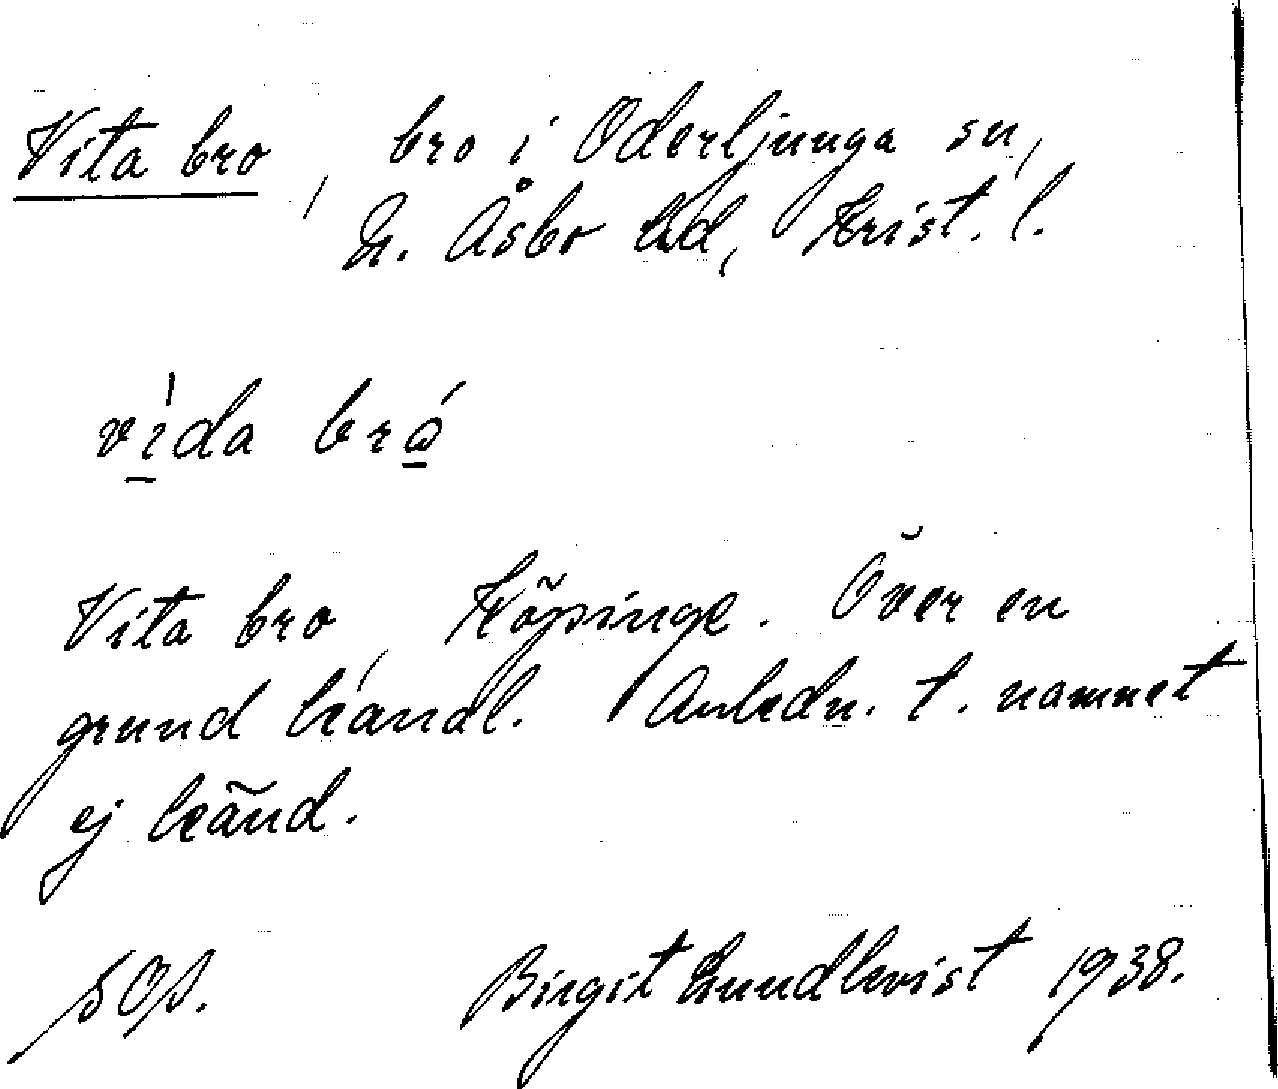 Vita bro, bro i Oderljunga sn,
N. Åsbo hd, Krist. l.
vida brω
Vita bro, Köpinge. Över en
grund kanal. Anledn. t. namnet
ej känd.
SOS. Birgit Lundkvist 1938.